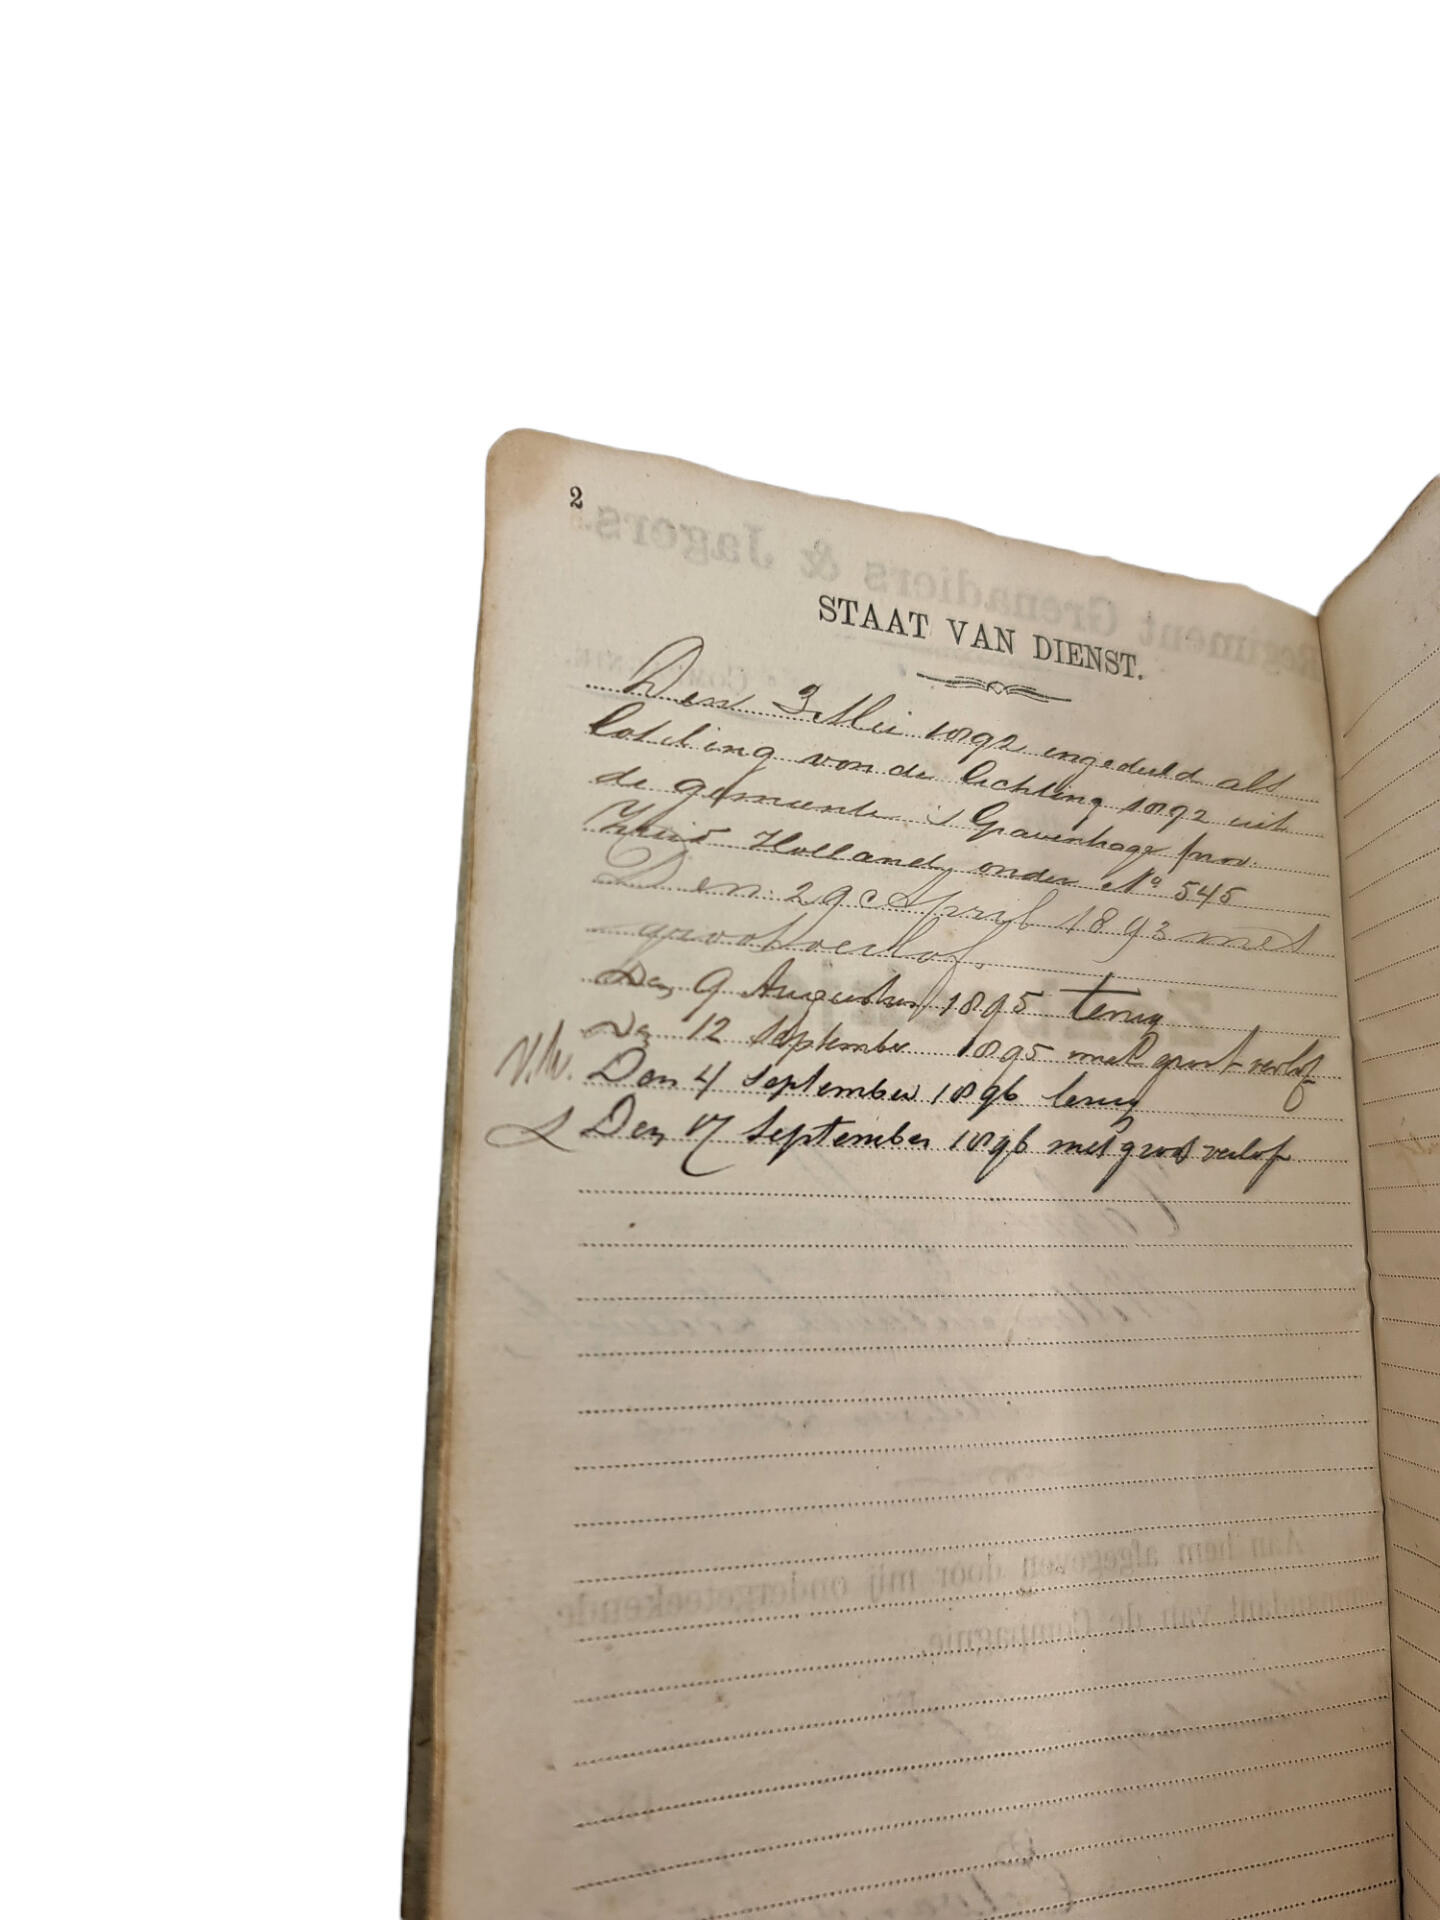 2
STAAT VAN DIENST.
Den 3 Mei 1892 ingedeeld als
loteling van de lichting 1892 uit
de gemeente 's Gravenhage prov.
Zuid Holland onder No 545
Den 29 April 1893 met
groot verlof.
Den 9 Augustus 1895 terug
Den 12 September 1895 met groot verlof
Den 4 September 1896 terug
Den 17 September 1896 met groot verlof
Regiment Grenadiers & Jagers.
Aan hem afgegeven door mij ondergeteekende,
van de Compagnie.